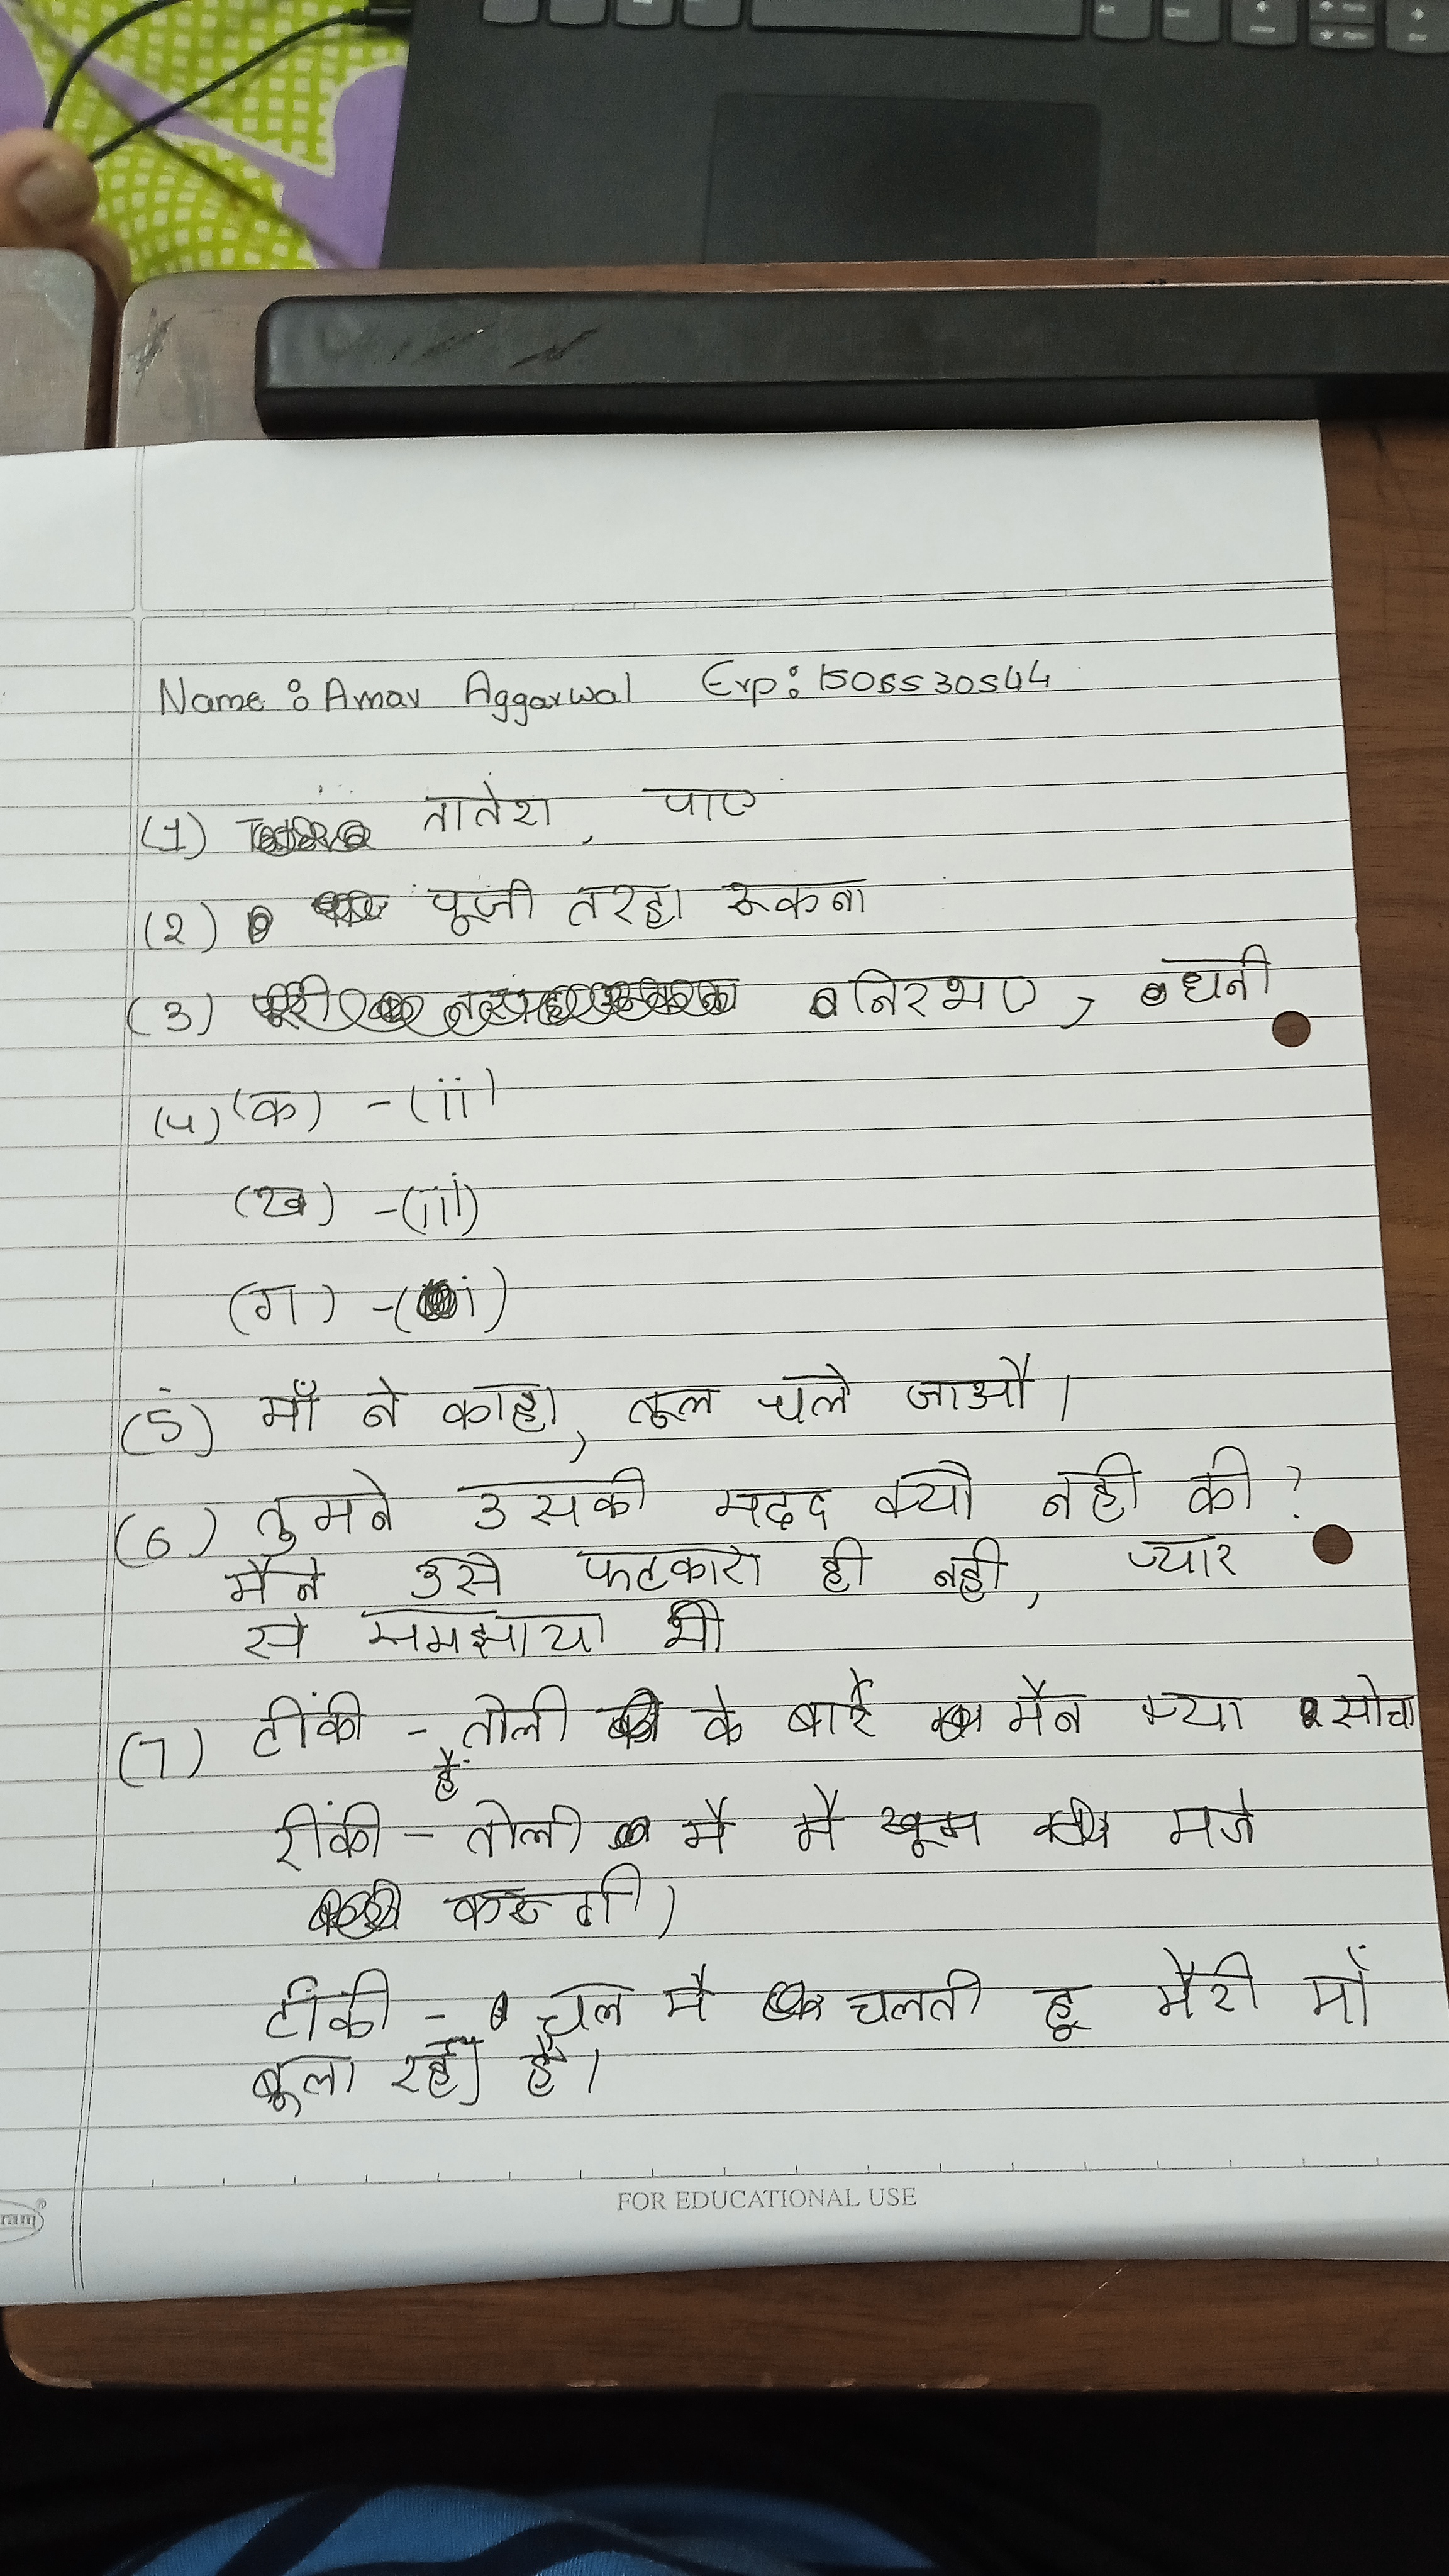 Name : Amar Aggarwal Erp: 1505530544
(1) तातेरा, पाए
(2) पूजी तरहा रूकना
(3) निरभए, धनी
(4) (क) - (ii)
(ख) - (iii)
(ग) - (i)
(5) माँ ने काहा, तूल चले जाओ।
(6) तुमने उसकी मदद क्यौ नही की ?
मैने उसे फटकारा ही नही, प्यार
से समझाया भी
(7) टींकी - तोली के बारे मैन क्या सोचा
है
रींकी - तोली मै मै खूम मजे
करूगी।
टींकी - चल मै चलती हू मैरी माँ
बूला रही है।
FOR EDUCATIONAL USE